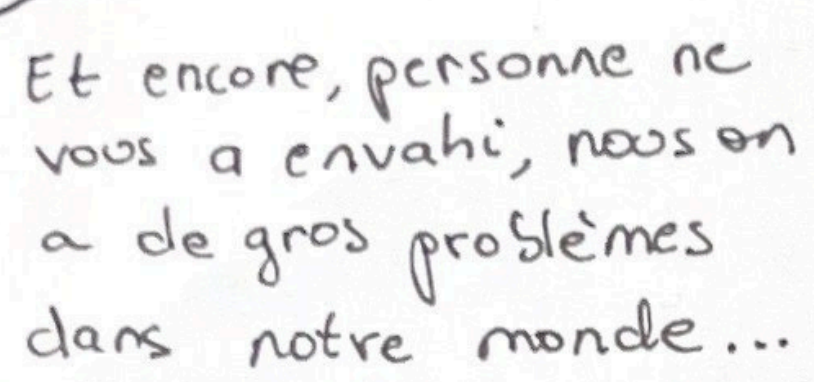 Et encore, personne ne
vous a envahi, nous on
a de gros problèmes
dans notre monde...